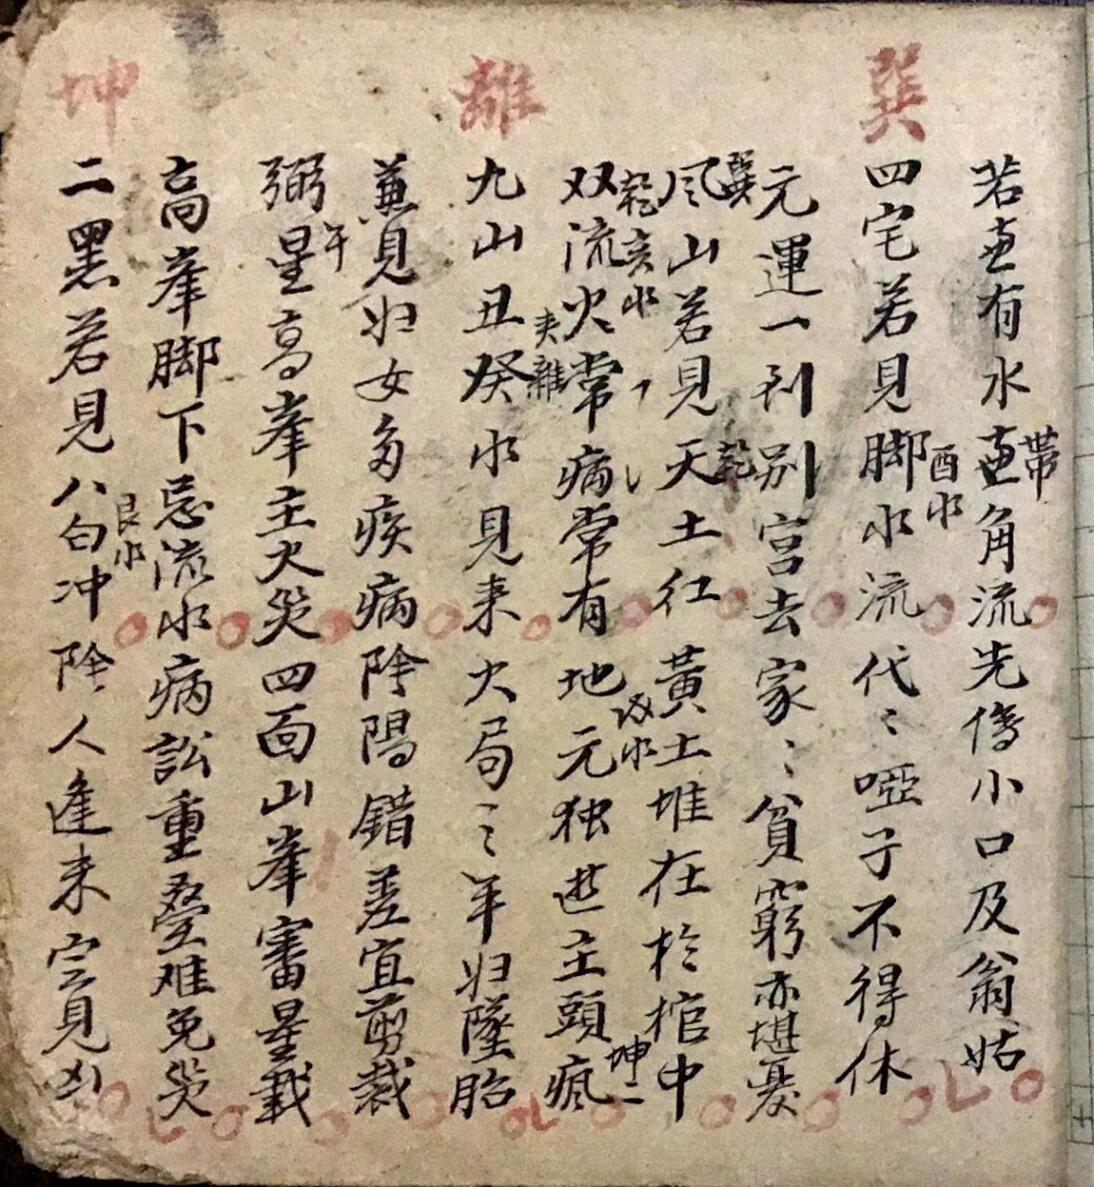 若直有水直角流先傷小口及翁姑
帶
巽
四宅若見脚水流代〻啞子不得休
酉水
元運一到别宫去家〻貧窮亦堪憂
巽
风山若見天土红黃土堆在於棺中
乾
乾亥水
双流火常病常有地元独进主頭瘋
坤二
離
九山丑癸水見来大局〻年妇墜胎
夹離
兼見妇女多疾病陰陽錯差宜剪裁
弼星高峯主火災四面山峯審星裁
午
高峯脚下忌流水病訟重叠难免災
坤
二黑若見八白冲陰人逢来定見凶
艮水